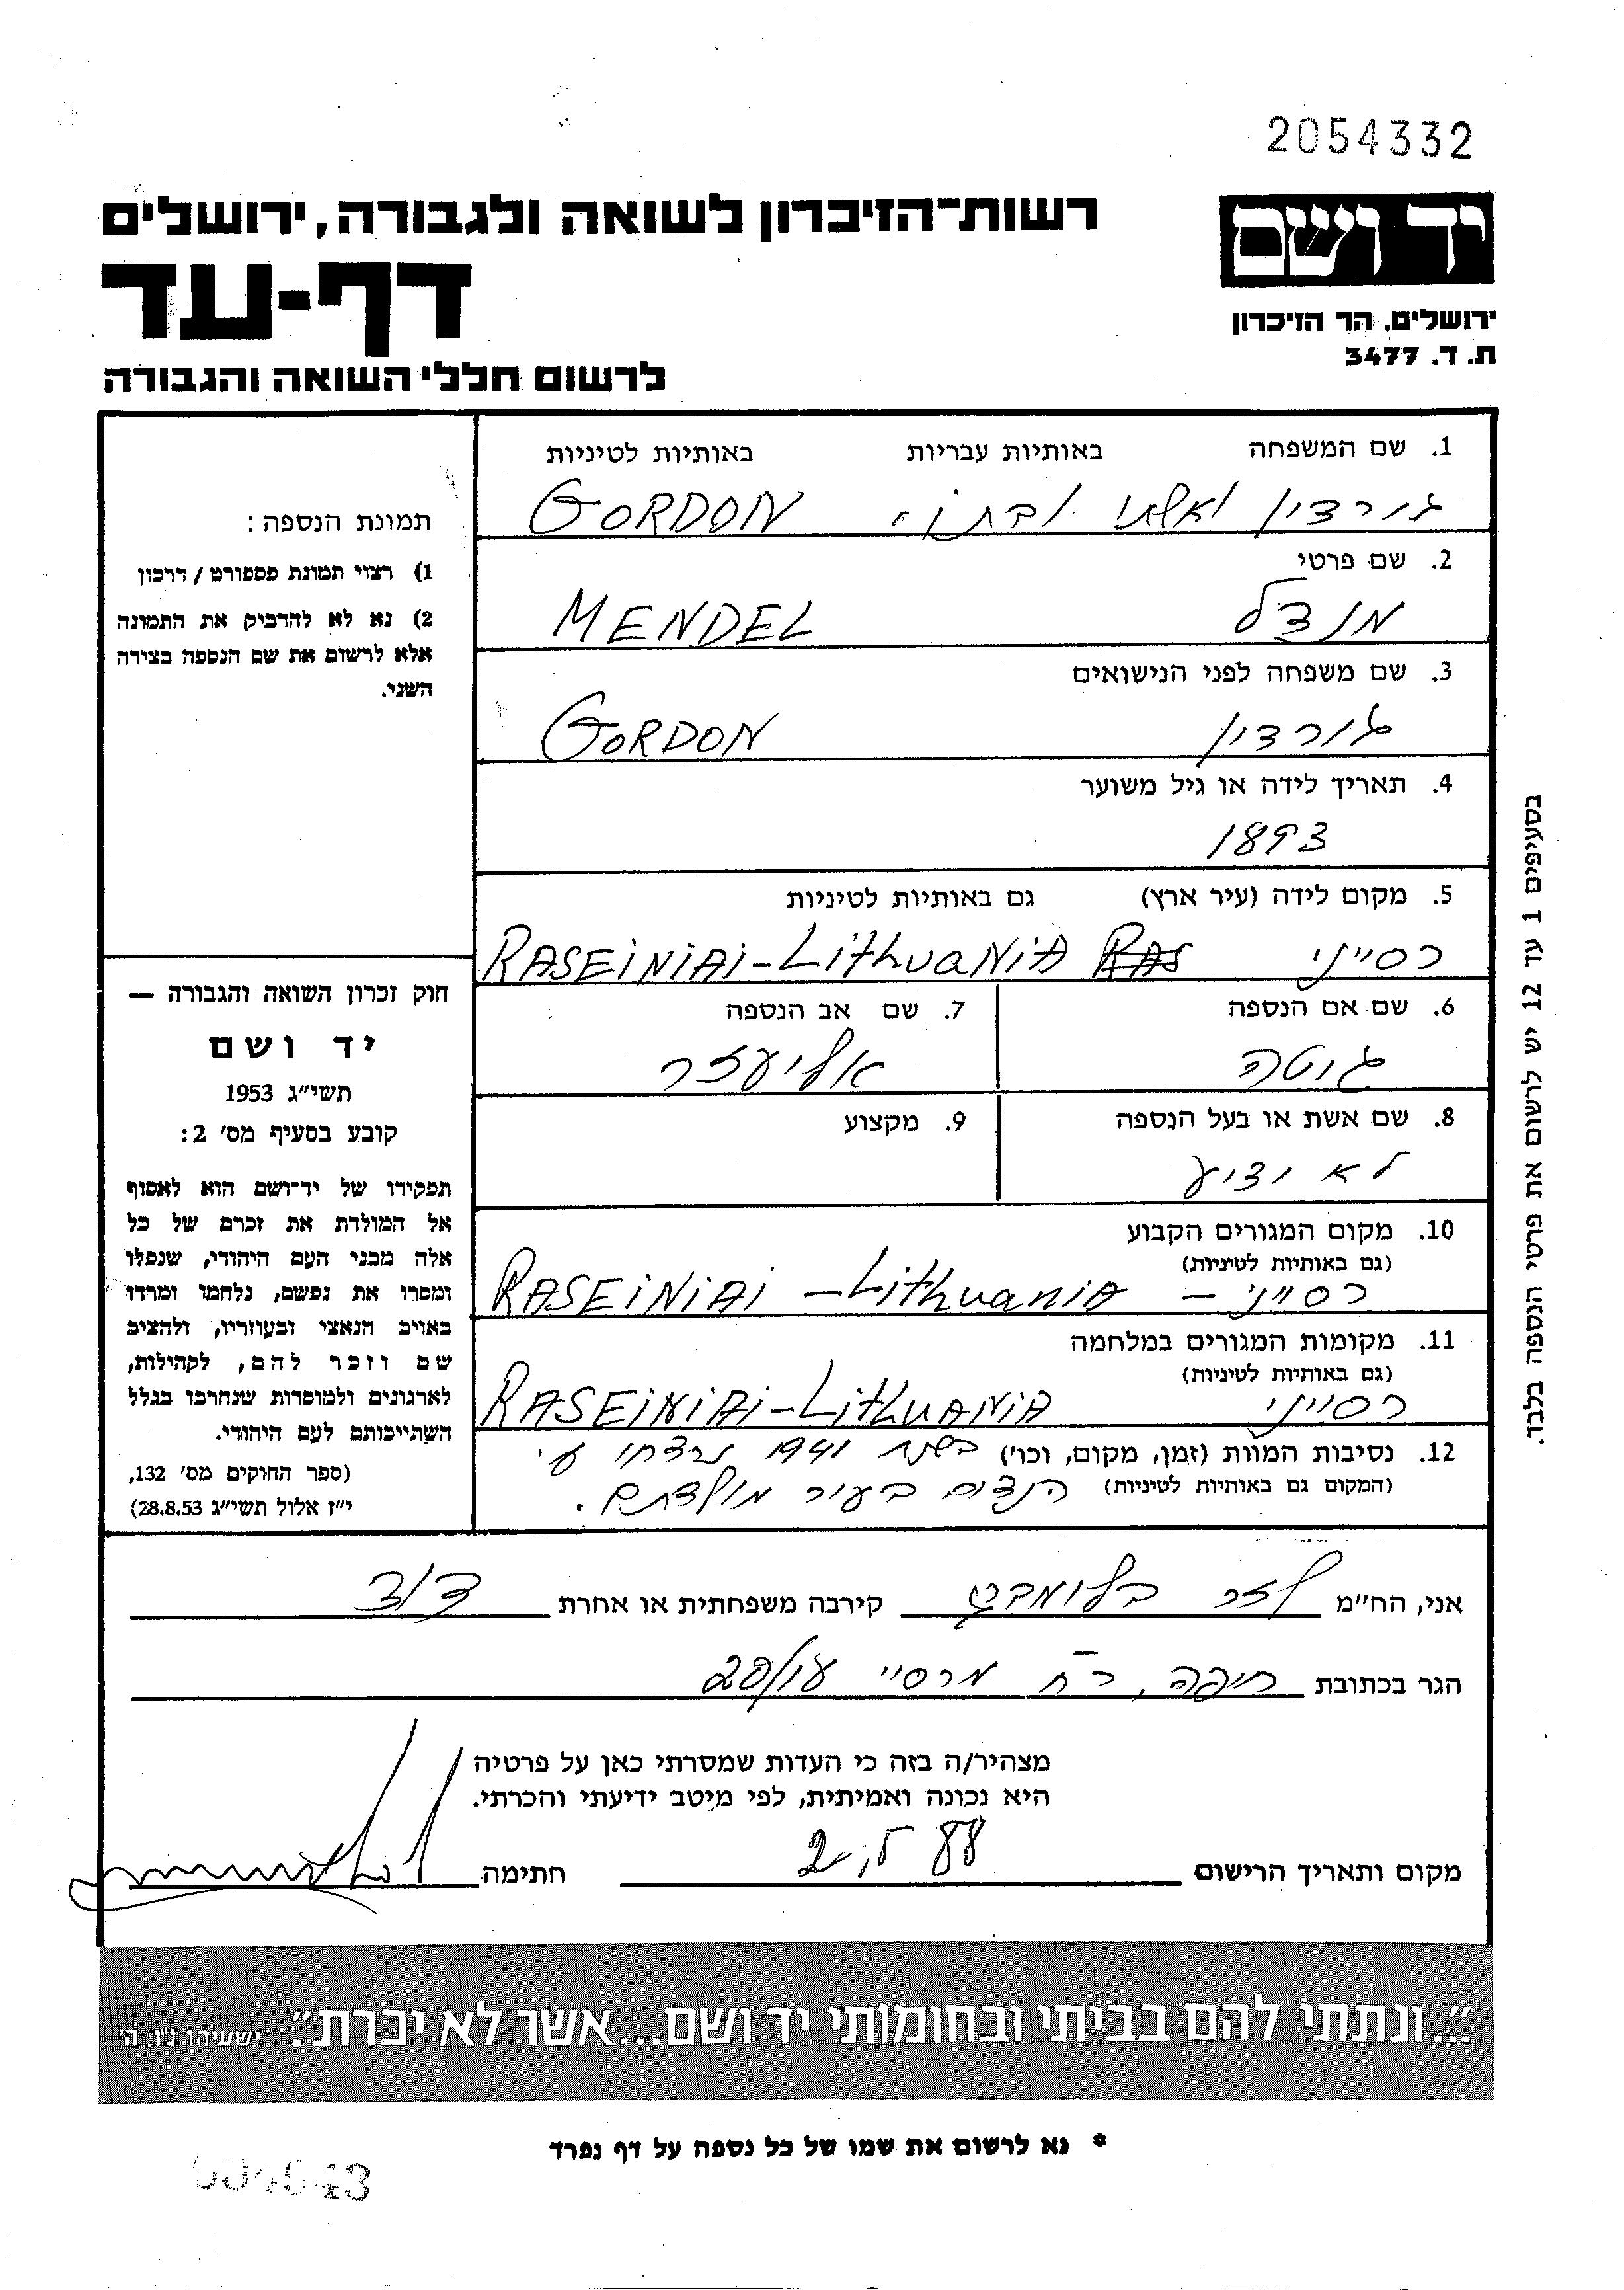 2054332
רשות־הזיכרון לשואה ולגבורה, ירושלים
יד ושם
דף-עד
ירושלים, הר הזיכרון
ת. ד. 3477
לרשום חללי השואה והגבורה
1. שם המשפחה באותיות עבריות באותיות לטיניות
גורדון ואשתו ובתו GORDON
2. שם פרטי
מנדל MENDEL
3. שם משפחה לפני הנישואים
גורדון GORDON
4. תאריך לידה או גיל משוער
1893
5. מקום לידה (עיר ארץ) גם באותיות לטיניות
רסייני RAS RASEiNiAi-LithuaNiA
6. שם אם הנספה 7. שם אב הנספה
גוטה אליעזר
8. שם אשת או בעל הנספה 9. מקצוע
לא ידוע
10. מקום המגורים הקבוע
(גם באותיות לטיניות)
רסייני - RASEiNiAi - LithuaniA
11. מקומות המגורים במלחמה
(גם באותיות לטיניות)
רסייני RASEiNiAi-LithuANiA
12. נסיבות המוות (זמן, מקום, וכו') בשנת 1941 נרצחו ע"י
(המקום גם באותיות לטיניות) הנצים בעיר מולדתם.
תמונת הנספה:
1) רצוי תמונת פספורט / דרכון
2) נא לא להדביק את התמונה
אלא לרשום את שם הנספה בצידה
השני.
חוק זכרון השואה והגבורה —
יד ושם
תשי"ג 1953
קובע בסעיף מס' 2:
תפקידו של יד־ושם הוא לאסוף
אל המולדת את זכרם של כל
אלה מבני העם היהודי, שנפלו
ומסרו את נפשם, נלחמו ומרדו
באויב הנאצי ובעוזריו, ולהציב
שם וזכר להם, לקהילות,
לארגונים ולמוסדות שנחרבו בגלל
השתייכותם לעם היהודי.
(ספר החוקים מס' 132,
י"ז אלול תשי"ג 28.8.53)
בסעיפים 1 עד 12 יש לרשום את פרטי הנספה בלבד.
אני, הח"מ לזר בלומברג קירבה משפחתית או אחרת דוד
הגר בכתובת חיפה, רח מרסיי 20/
מצהיר/ה בזה כי העדות שמסרתי כאן על פרטיה
היא נכונה ואמיתית, לפי מיטב ידיעתי והכרתי.
מקום ותאריך הרישום 2.5.88 חתימה
"...ונתתי להם בביתי ובחומותי יד ושם...אשר לא יכרת". ישעיהו נ"ו, ה'
* נא לרשום את שמו של כל נספה על דף נפרד